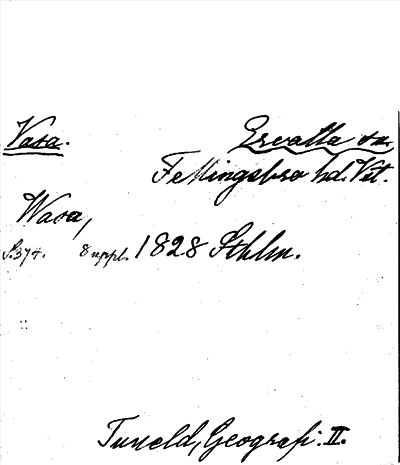 Vasa. Ervalla sn.
Fellingsbro hd. Vst.
Wasa,
S. 374. 8 uppl. 1828 Sthlm.
Tuneld, Geografi. II.